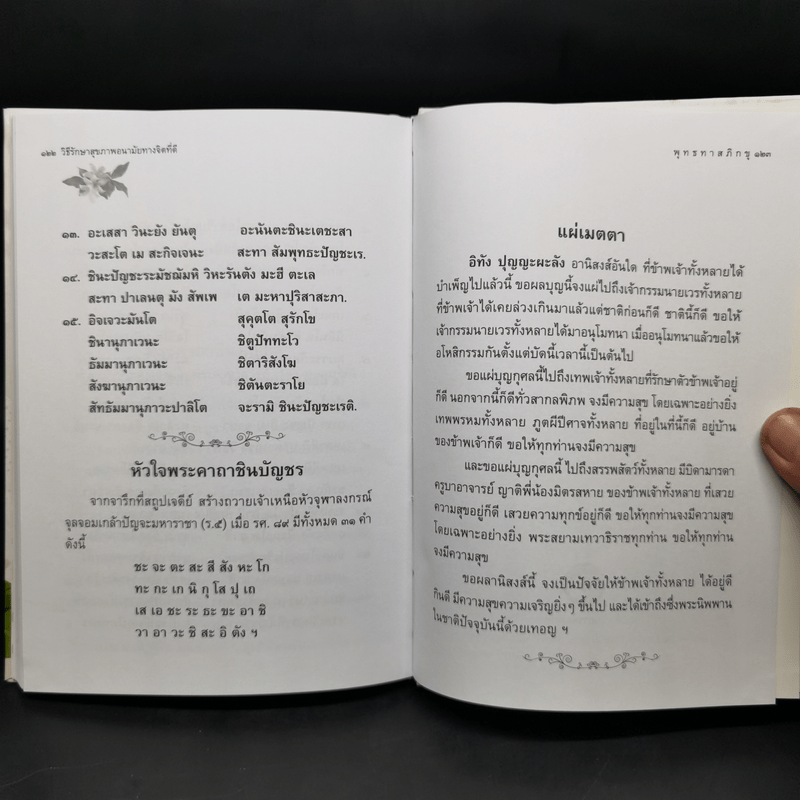 ๑๒๒ วิธีรักษาสุขภาพอนามัยทางจิตที่ดี
๑๓. อะเสสา วินะยัง ยันตุ อะนันตะชินะเตชะสา
วะสะโต เม สะกิจเจนะ สะทา สัมพุทธะปัญชะเร.
๑๔. ชินะปัญชะระมัชฌัมหิ วิหะรันตัง มะฮี ตะเล
สะทา ปาเลนตุ มัง สัพเพ เต มะหาปุริสาสะภา.
๑๕. อิจเจวะมันโต สุคุตโต สุรักโข
ชินานุภาเวนะ ชิตูปัททะโว
ธัมมานุภาเวนะ ชิตาริสังโฆ
สังฆานุภาเวนะ ชิตันตะราโย
สัทธัมมานุภาวะปาลิโต จะรามิ ชินะปัญชะเรติ.
หัวใจพระคาถาชินบัญชร
จากจารึกที่สถูปเจดีย์ สร้างถวายเจ้าเหนือหัวจุพาลงกรณ์
จุลจอมเกล้าปัญจะมหาราชา (ร.๕) เมื่อ รศ. ๘๙ มีทั้งหมด ๓๑ คำ
ดังนี้
ชะ จะ ตะ สะ สี สัง หะ โก
ทะ กะ เก นิ กุ โส ปุ เถ
เส เอ ชะ ระ ธะ ขะ อา ชิ
วา อา วะ ชิ สะ อิ ตัง ฯ
พุทธทาสภิกขุ ๑๒๓
แผ่เมตตา
อิทัง ปุญญะผะลัง อานิสงส์อันใด ที่ข้าพเจ้าทั้งหลายได้
บำเพ็ญไปแล้วนี้ ขอผลบุญนี้จงแผ่ไปถึงเจ้ากรรมนายเวรทั้งหลาย
ที่ข้าพเจ้าได้เคยล่วงเกินมาแล้วแต่ชาติก่อนก็ดี ชาตินี้ก็ดี ขอให้
เจ้ากรรมนายเวรทั้งหลายได้มาอนุโมทนา เมื่ออนุโมทนาแล้วขอให้
อโหสิกรรมกันตั้งแต่บัดนี้เวลานี้เป็นต้นไป
ขอแผ่บุญกุศลนี้ไปถึงเทพเจ้าทั้งหลายที่รักษาตัวข้าพเจ้าอยู่
ก็ดี นอกจากนี้ก็ดีทั่วสากลพิภพ จงมีความสุข โดยเฉพาะอย่างยิ่ง
เทพพรหมทั้งหลาย ภูตผีปีศาจทั้งหลาย ที่อยู่ในที่นี้ก็ดี อยู่บ้าน
ของข้าพเจ้าก็ดี ขอให้ทุกท่านจงมีความสุข
และขอแผ่บุญกุศลนี้ ไปถึงสรรพสัตว์ทั้งหลาย มีบิดามารดา
ครูบาอาจารย์ ญาติพี่น้องมิตรสหาย ของข้าพเจ้าทั้งหลาย ที่เสวย
ความสุขอยู่ก็ดี เสวยความทุกข์อยู่ก็ดี ขอให้ทุกท่านจงมีความสุข
โดยเฉพาะอย่างยิ่ง พระสยามเทวาธิราชทุกท่าน ขอให้ทุกท่าน
จงมีความสุข
ขอผลานิสงส์นี้ จงเป็นปัจจัยให้ข้าพเจ้าทั้งหลาย ได้อยู่ดี
กินดี มีความสุขความเจริญยิ่งๆ ขึ้นไป และได้เข้าถึงซึ่งพระนิพพาน
ในชาติปัจจุบันนี้ด้วยเทอญ ฯ